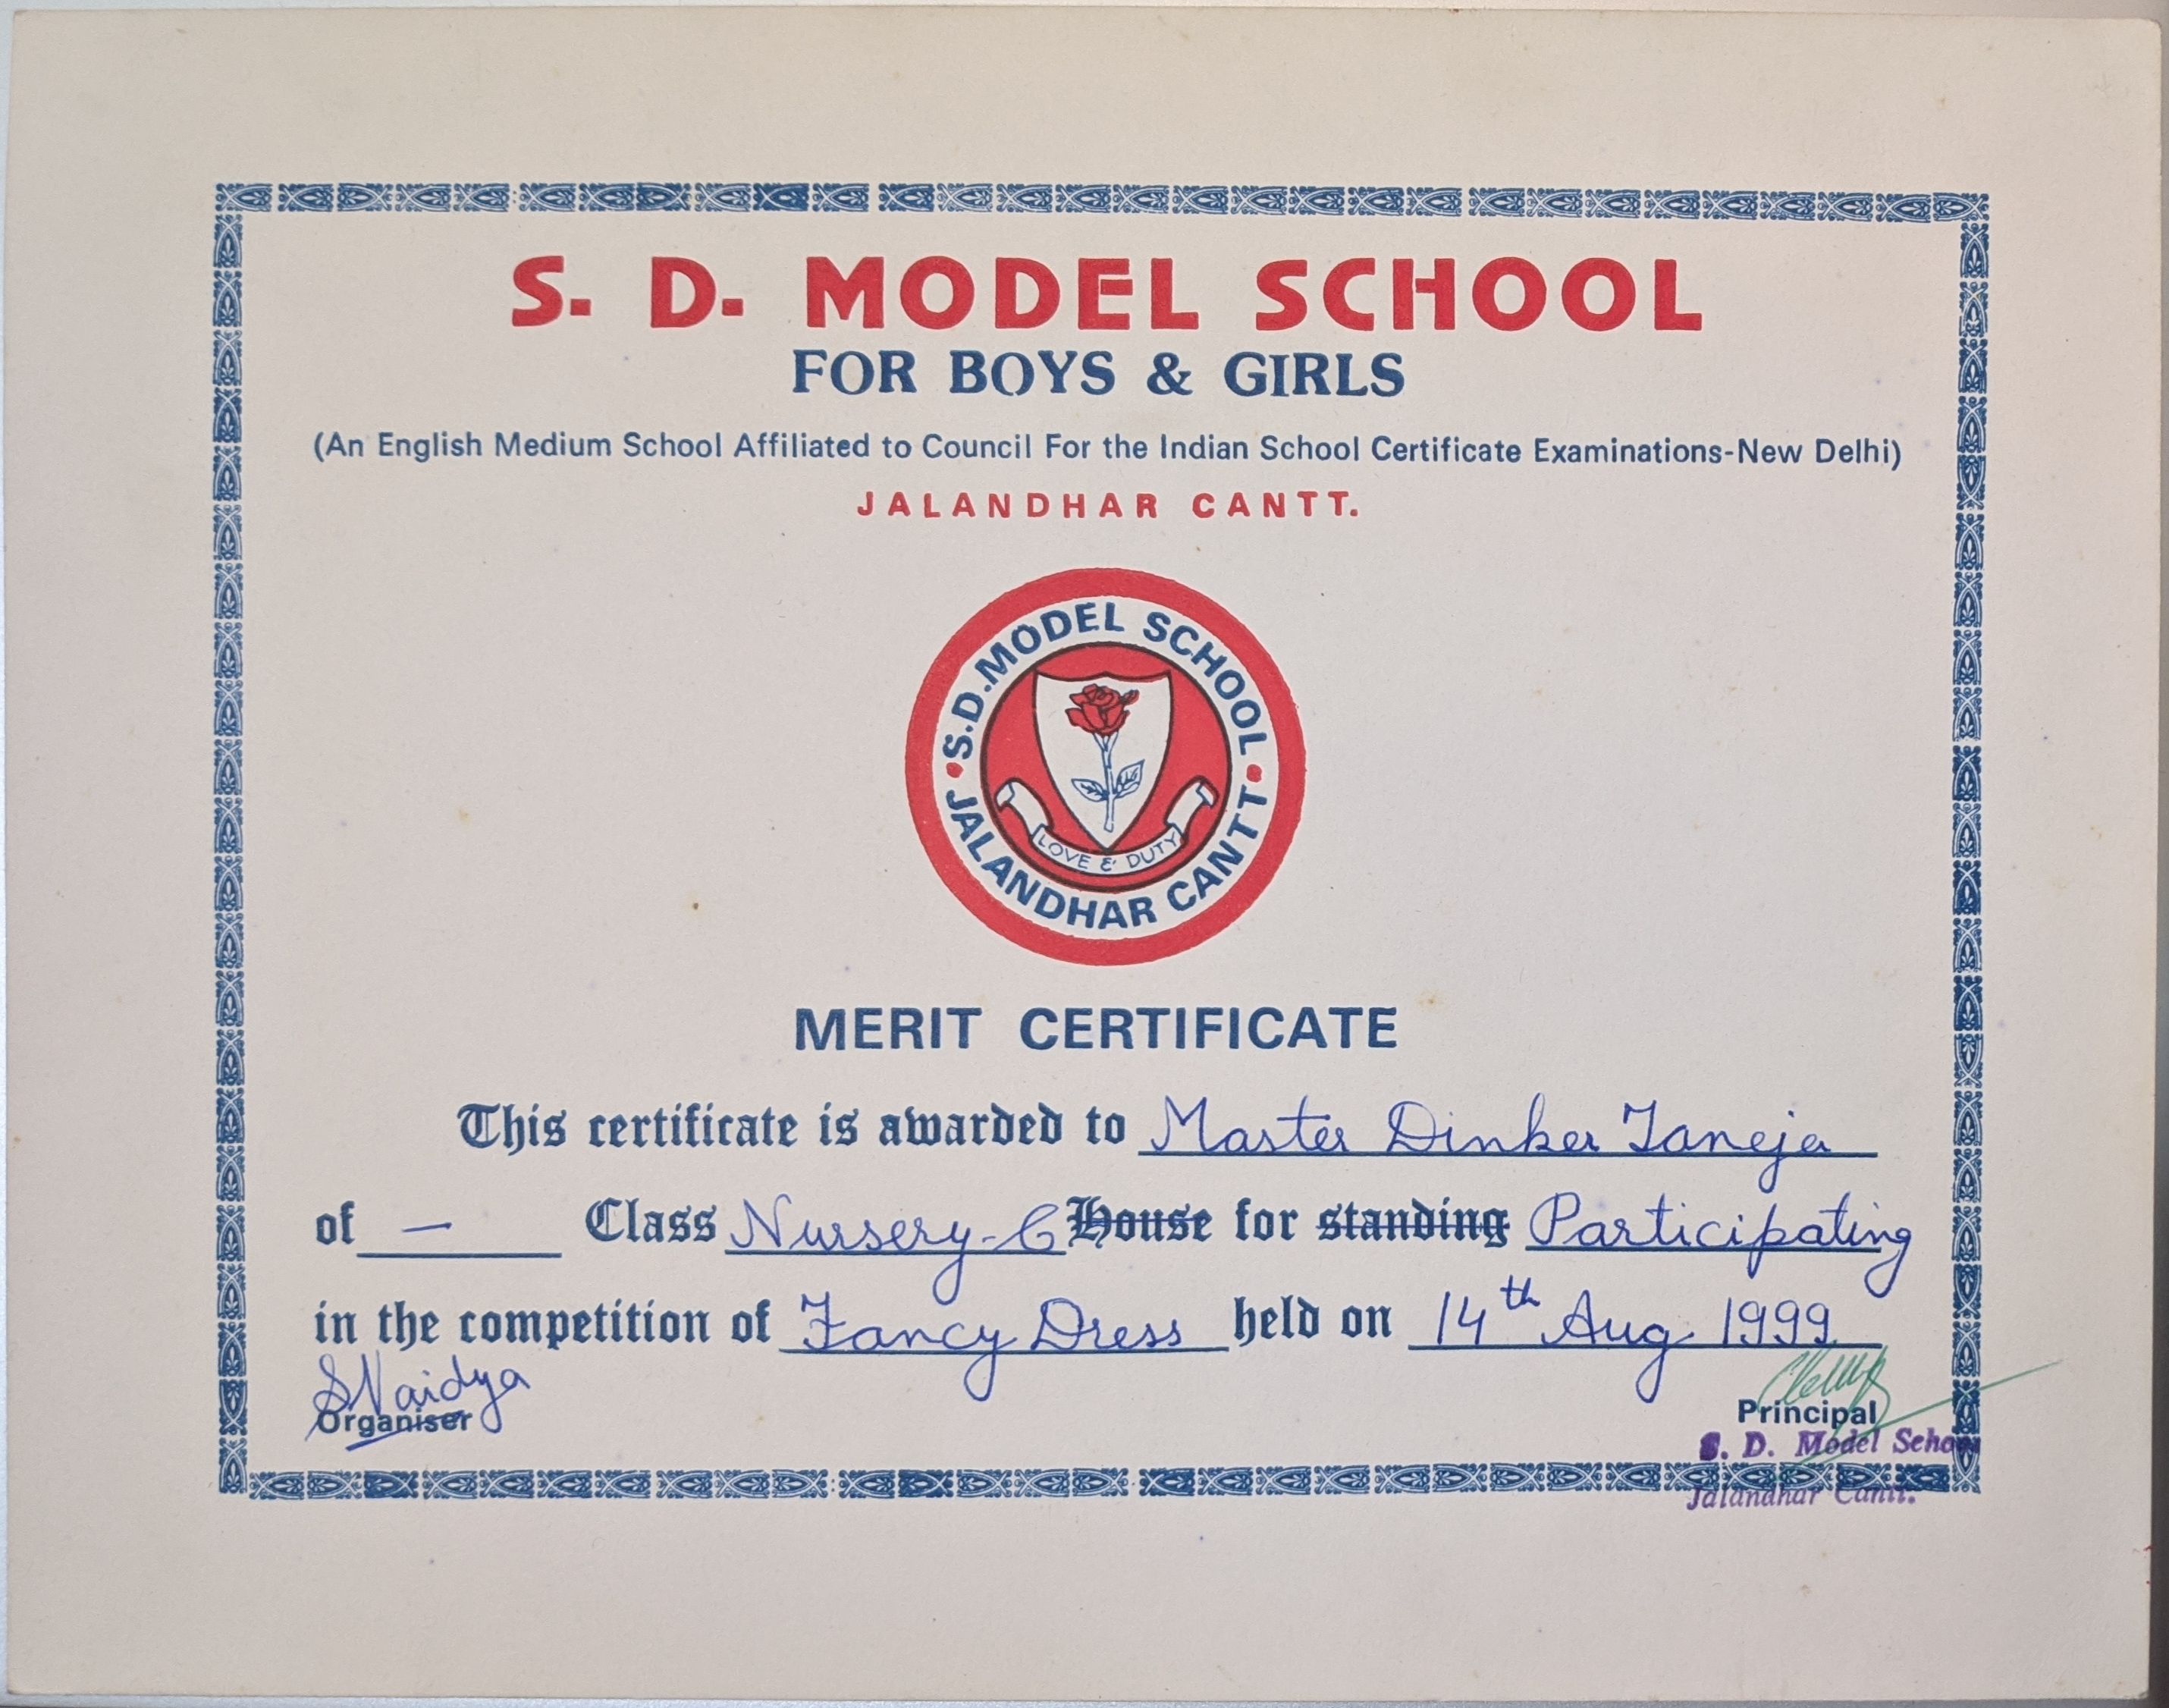 S. D. MODEL SCHOOL
FOR BOYS & GIRLS
(An English Medium School Affiliated to Council For the Indian School Certificate Examinations-New Delhi)
JALANDHAR CANTT.
S.D. MODEL SCHOOL
LOVE & DUTY
JALANDHAR CANTT
MERIT CERTIFICATE
This certificate is awarded to Master Dinker Taneja
of — Class Nursery-C House for standing Participating
in the competition of Fancy Dress held on 14th Aug. 1999
SVaidya
Organiser
Principal
S. D. Model School
Jalandhar Cantt.